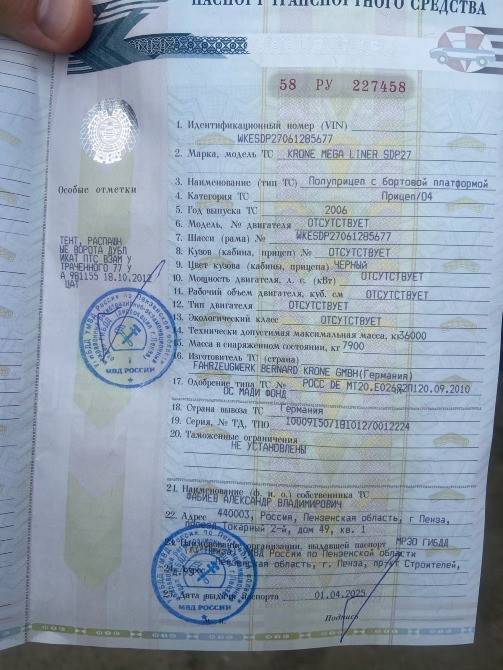 ПАСПОРТ ТРАНСПОРТНОГО СРЕДСТВА
58 РУ 227458
1. Идентификационный номер (VIN)
WKESDP27061285677
2. Марка, модель ТС KRONE MEGA LINER SDP27
3. Наименование (тип ТС) Полуприцеп с бортовой платформой
4. Категория ТС Прицеп/О4
5. Год выпуска ТС 2006
6. Модель, № двигателя ОТСУТСТВУЕТ
7. Шасси (рама) № WKESDP27061285677
8. Кузов (кабина, прицеп) № ОТСУТСТВУЕТ
9. Цвет кузова (кабины, прицепа) ЧЕРНЫЙ
10. Мощность двигателя, л. с. (кВт) ОТСУТСТВУЕТ
11. Рабочий объем двигателя, куб. см ОТСУТСТВУЕТ
12. Тип двигателя ОТСУТСТВУЕТ
13. Экологический класс ОТСУТСТВУЕТ
14. Технически допустимая максимальная масса, кг 36000
15. Масса в снаряженном состоянии, кг 7900
16. Изготовитель ТС (страна)
FAHRZEUGWERK BERNARD KRONE GMBH(Германия)
17. Одобрение типа ТС № РОСС DE МТ20.Е02692П120.09.2010
ОС МАДИ ФОНД
18. Страна вывоза ТС Германия
19. Серия, № ТД, ТПО 10009150/181012/0012224
20. Таможенные ограничения
НЕ УСТАНОВЛЕНЫ
21. Наименование (ф. и. о.) собственника ТС
ФАБИЕВ АЛЕКСАНДР ВЛАДИМИРОВИЧ
22. Адрес 440003, Россия, Пензенская область, г Пенза,
проезд Токарный 2-й, дом 49, кв. 1
23. Наименование организации, выдавшей паспорт МРЭО ГИБДД
МВД России по Пензенской области
24. Адрес Пензенская область, г. Пенза, пр-кт Строителей,
25. Дата выдачи паспорта 01.04.2025
М. п.
Подпись
Особые отметки
ТЕНТ, РАСПАШН
ЫЕ ВОРОТА ДУБЛ
ИКАТ ПТС ВЗАМ У
ТРАЧЕННОГО 77 У
А 981155 18.10.2012
ЦАТ
МВД РОССИИ
МВД РОССИИ